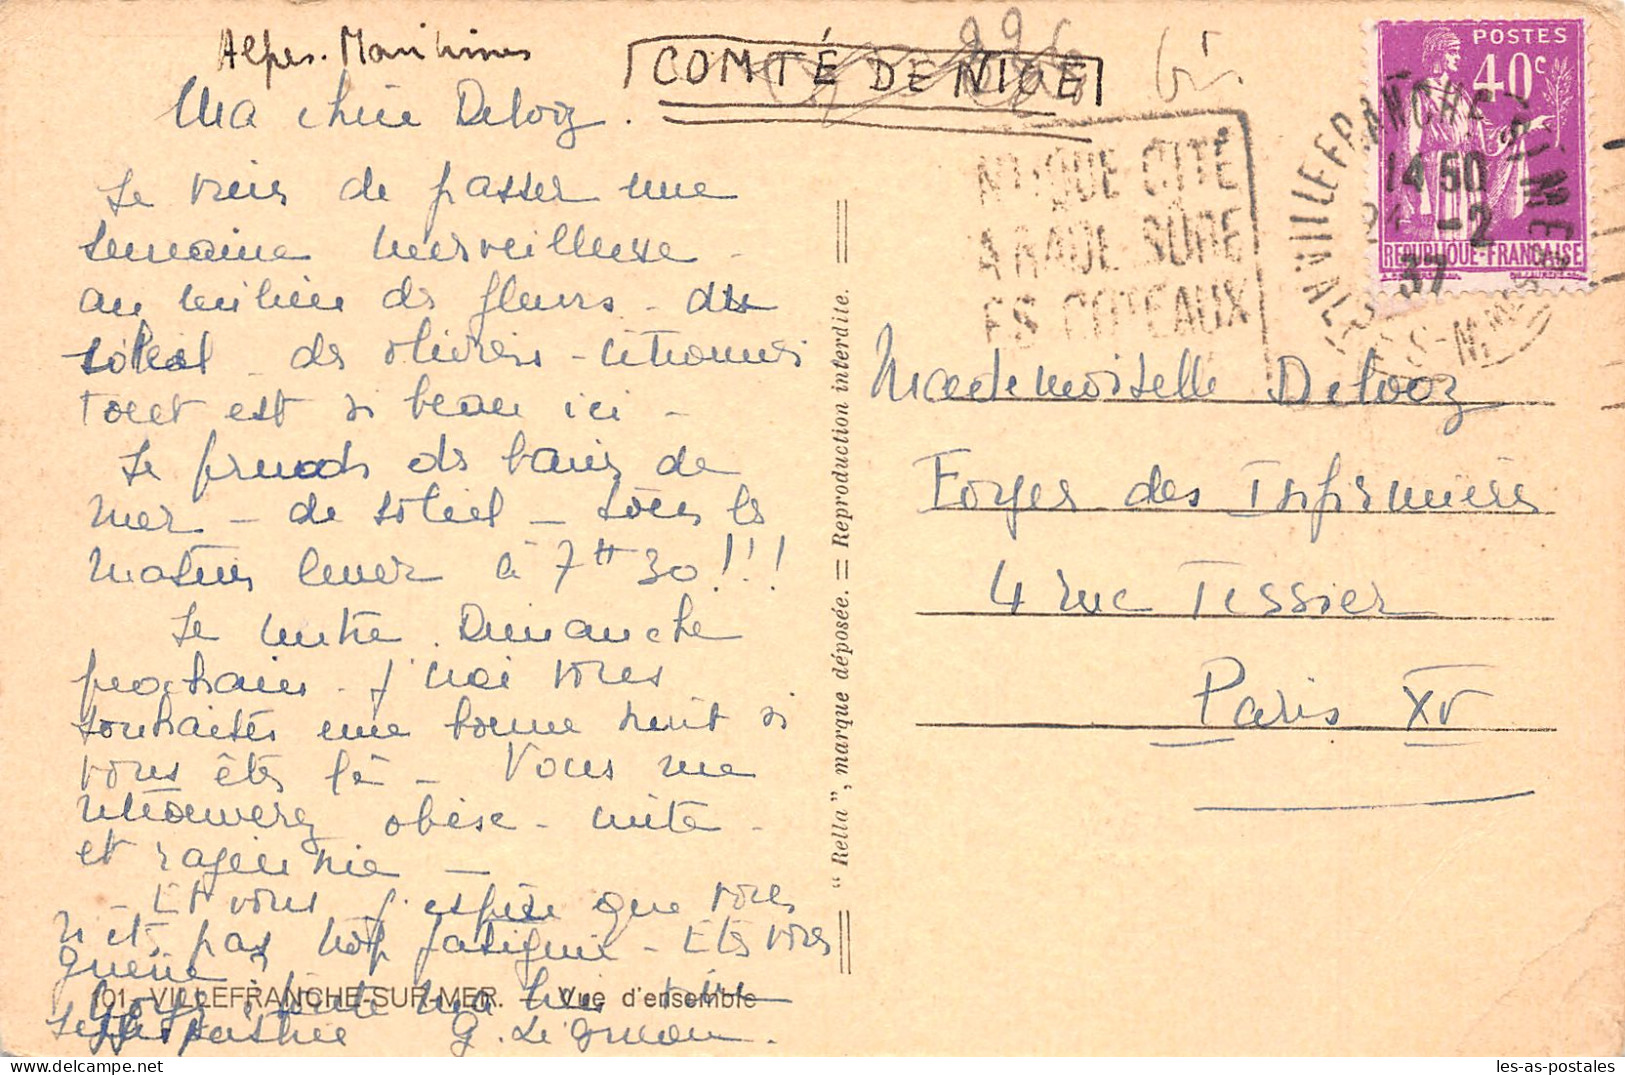 Alpes-Maritimes
COMTÉ DE NICE
bis
Ma chère Delooz.
Je viens de passer une
semaine merveilleuse -
au milieu des fleurs - du
soleil - des oliviers - citronniers
tout est si beau ici -
Je prends des bains de
mer - de soleil - tous les
matins lever à 7H30!!!
Je rentre Dimanche
prochain - j'irai vous
souhaiter une bonne nuit si
vous êtes là - Vous me
retrouverez obèse - cuite -
et rajeunie -
- Et vous j'espère que vous
n'êtes pas trop fatiguée - Etes vous
guérie
101 - VILLEFRANCHE-SUR-MER. - Vue d'ensemble
"Rella", marque déposée. = Reproduction interdite.
POSTES
40c
REPUBLIQUE-FRANCAISE
VILLEFRANCHE S/MER
14 50
-2
37
ALPES-MMES
CITÉ
RADE SURE
COTEAUX
Mademoiselle Delooz
Foyer des Infirmières
4 rue Tessier
Paris XV
les-as-postales